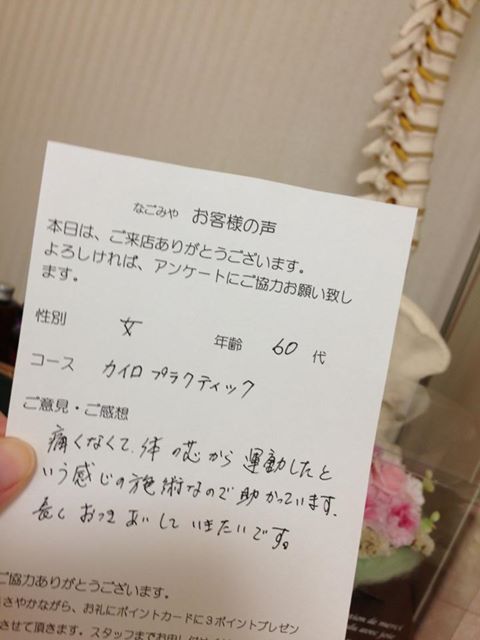 なごみや お客様の声
本日は、ご来店ありがとうございます。
よろしければ、アンケートにご協力お願い致し
ます。
性別 女 年齢 60 代
コース カイロプラクティック
ご意見・ご感想
痛くなくて、体の芯から運動したと
いう感じの施術なので助かっています、
長くおつきあいしていきたいです。
ご協力ありがとうございます。
ささやかながら、お礼にポイントカードに3ポイントプレゼン
させて頂きます。スタッフまでお申し